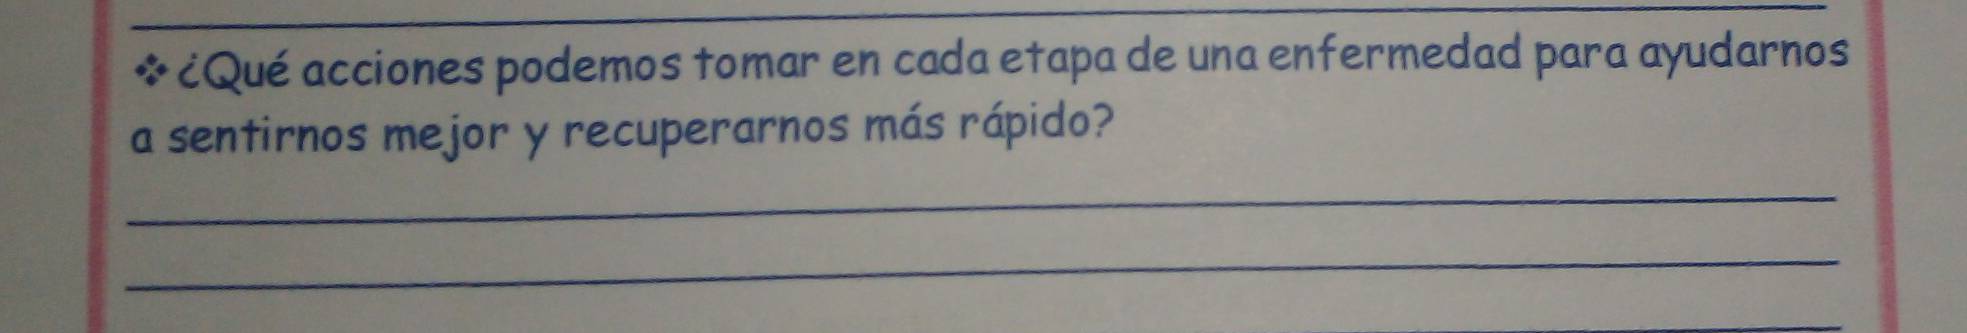 ❖ ¿Qué acciones podemos tomar en cada etapa de una enfermedad para ayudarnos
a sentirnos mejor y recuperarnos más rápido?